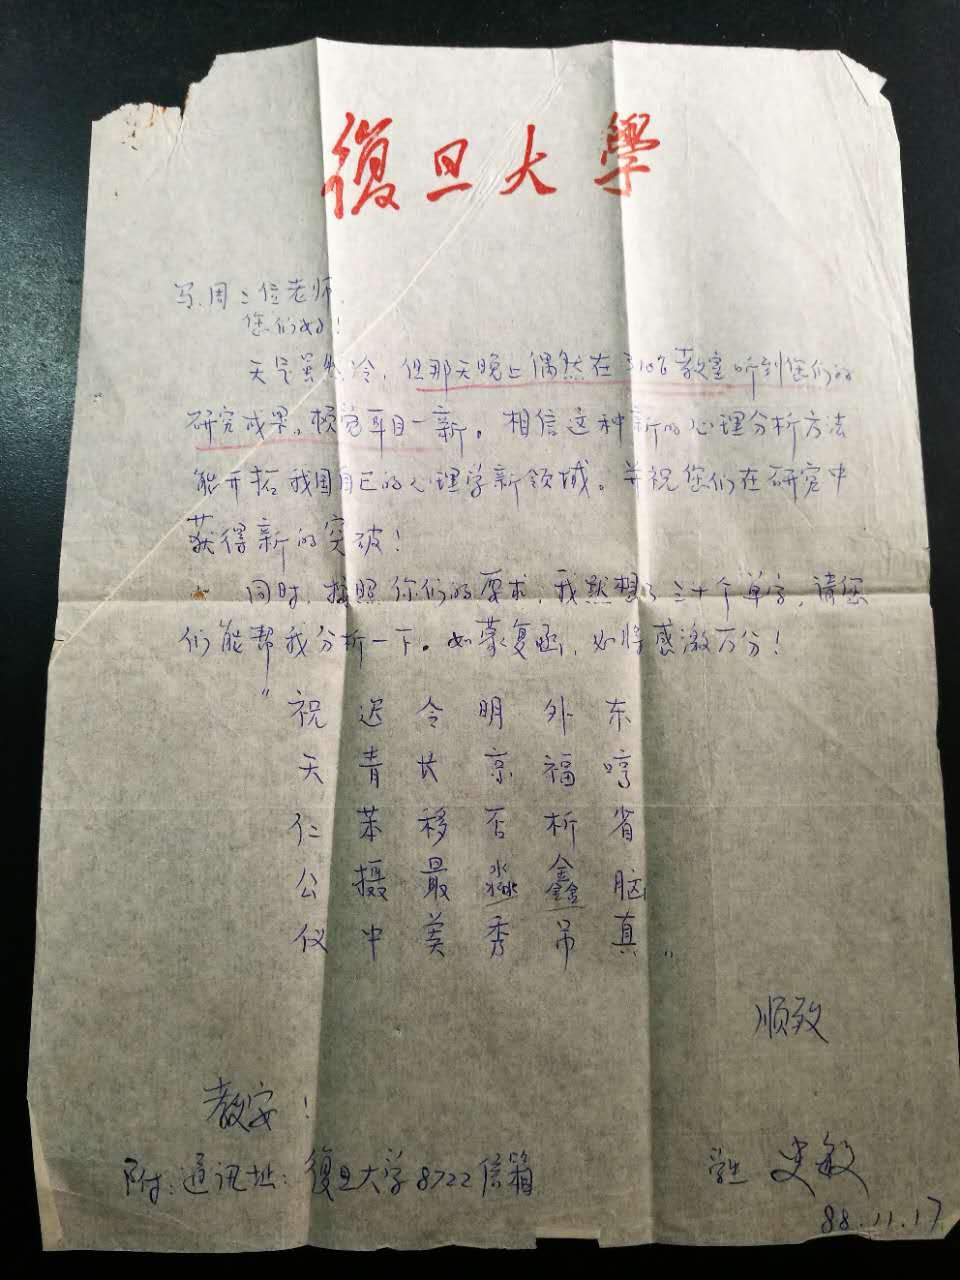 復旦大學
周二位老师、
您们好！
天气虽然冷，但那天晚上偶然在3108教室听到您们的
研究成果，颇觉耳目一新。相信这种新的心理分析方法
能开拓我国自己的心理学新领域。并祝您们在研究中
获得新的突破！
同时，按照你们的要求，我默想了三十个单字，请您
们能帮我分析一下。如蒙复函，如将感激万分！
"祝 迟 令 明 外 东
天 青 长 京 福 哼
仁 苯 移 否 析 省
公 摄 最 淼 鑫 脑
仪 中 美 秀 吊 真"
顺致
教安！
学生 史敏
附：通讯址：復旦大学8722信箱
88.11.17